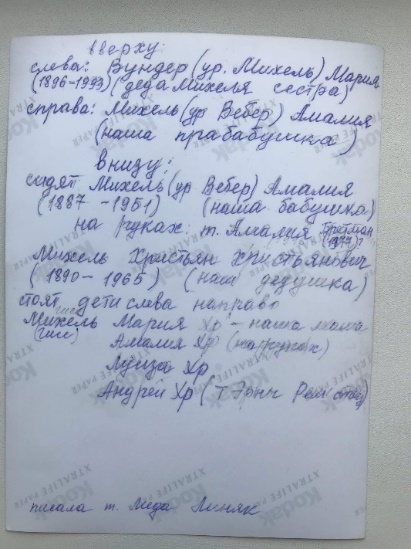 вверху:
слева: Вундер (ур. Михель) Мария
(1896-1993) (деда Михеля сестра)
справа: Михель (ур Вебер) Амалия
(наша прабабушка)
внизу:
сидят Михель (ур Вебер) Амалия
(1887-1951) (наша бабушка)
на руках: т. Амалия
Михель Христьян Христьянович
(1890-1965) (наш дедушка)
стоят дети слева направо
Михель Мария Хр - наша мама
(Гисс) Амалия Хр (на руках)
Луиза Хр
Андрей Хр (т Эрны
писала т. Лида Линяк
Kodak
XTRALIFE PAPER